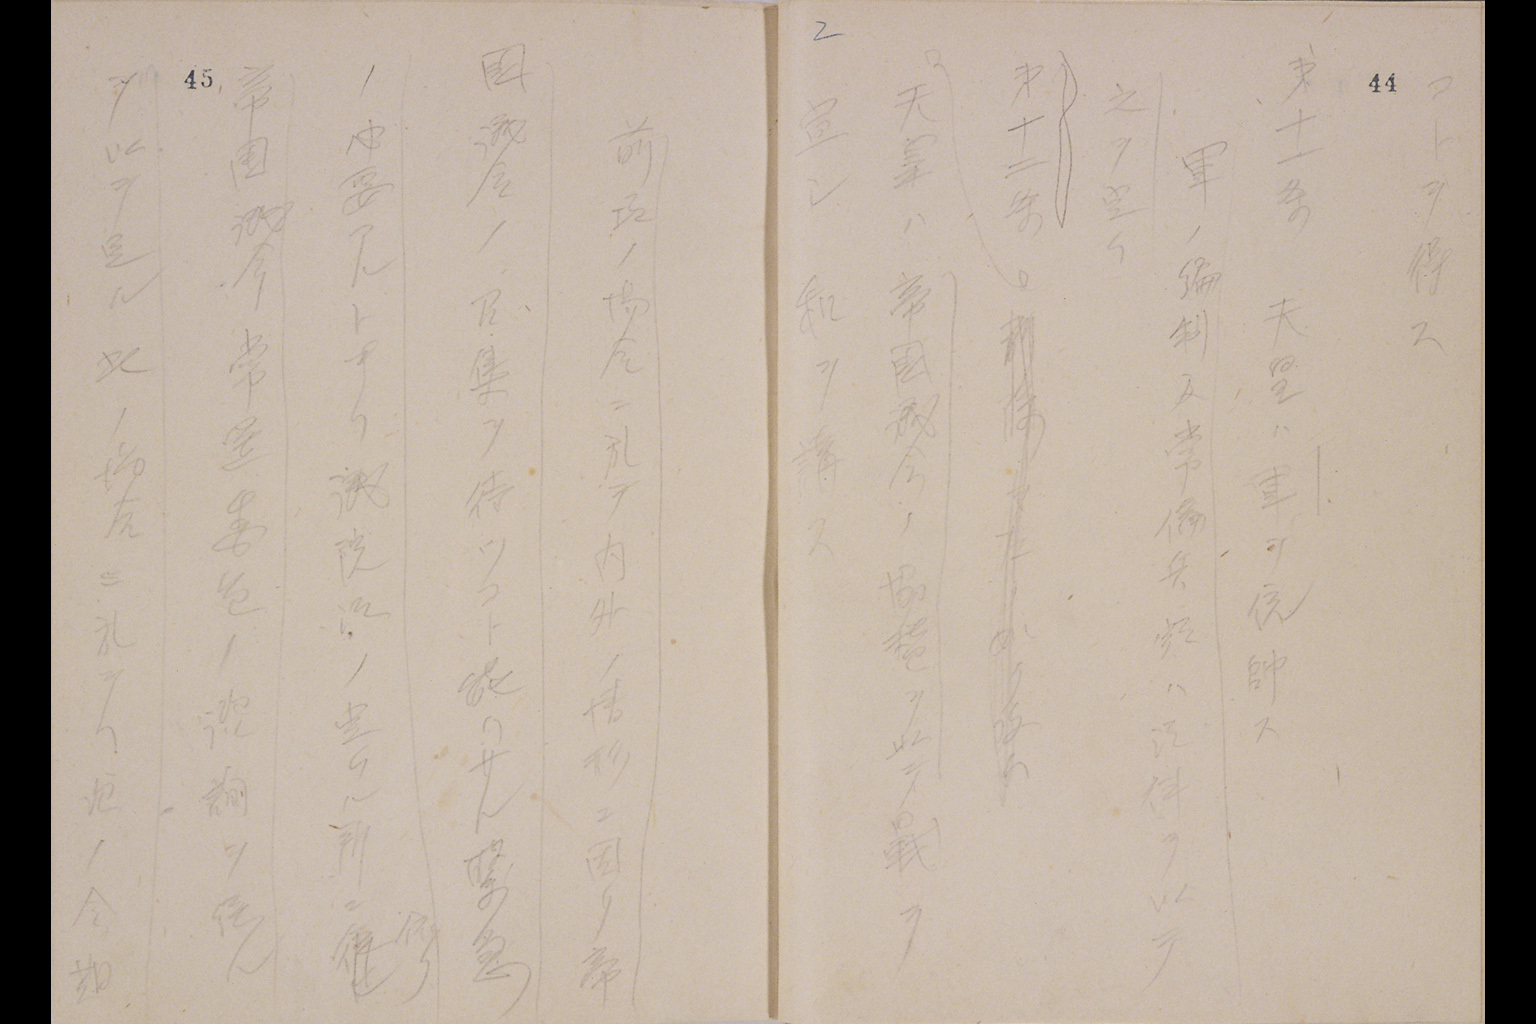 44
コトヲ得ス
第十一条 天皇ハ軍ヲ統帥ス
軍ノ編制及常備兵額ハ法律ヲ以テ
之ヲ定ム
第十二条
2
天皇ハ帝国議会ノ協賛ヲ以テ戦ヲ
宣シ和ヲ講ス
45
前項ノ場合ニ於テ内外ノ情形ニ因リ帝
国議会ノ召集ヲ待ツコト能ハサル緊急
ノ必要アルトキハ議院法ノ定ムル所ニ依リ
帝国議会常置委員ノ諮詢ヲ経ル
ヲ以テ足ル此ノ場合ニ於テハ次ノ会期